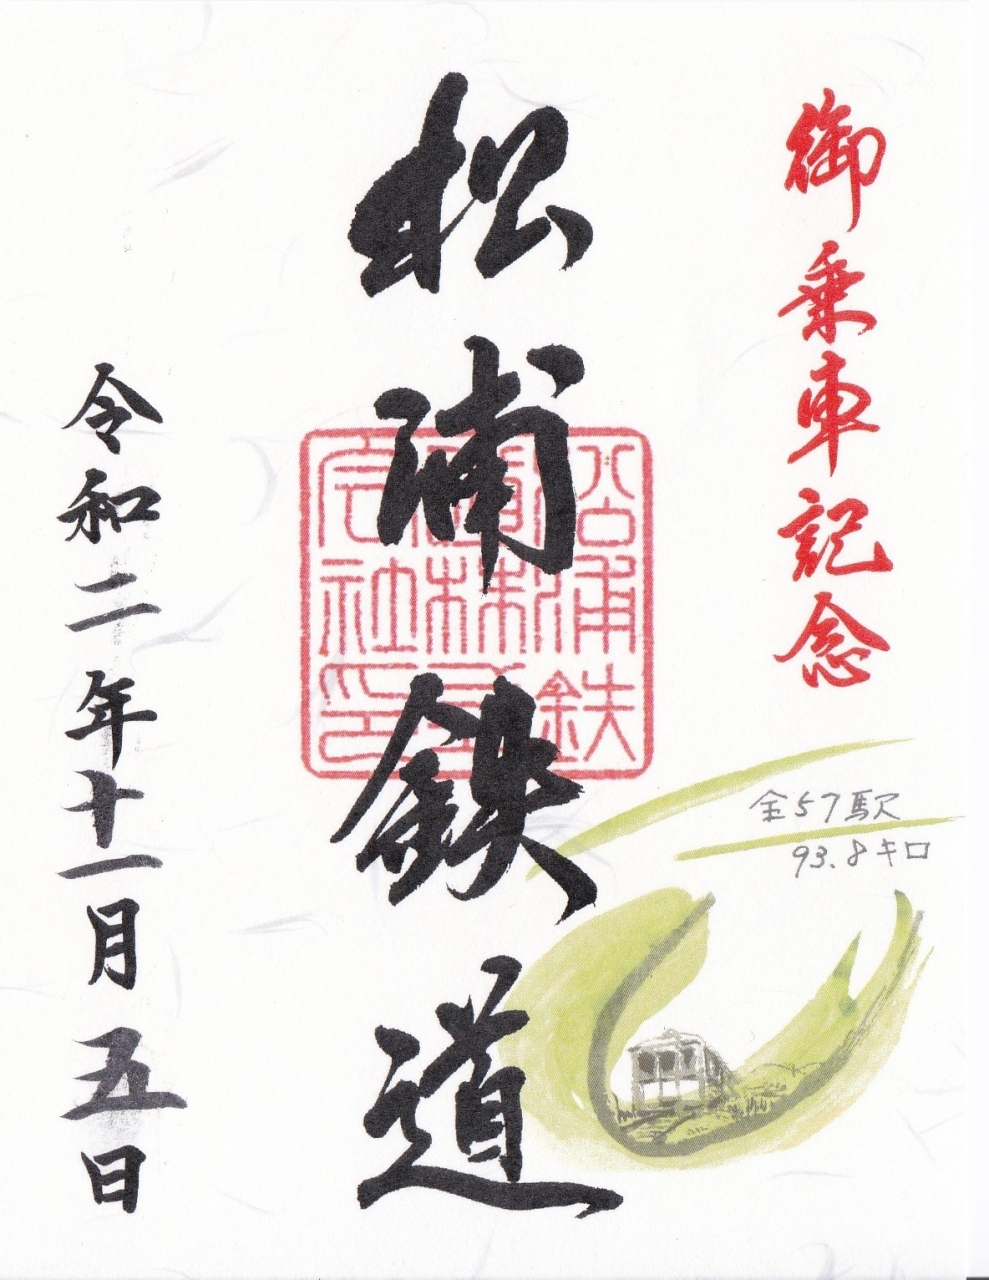 御乗車記念
全57駅
93.8キロ
松浦鉄道
松浦鉄
道株式
会社印
令和二年十一月五日